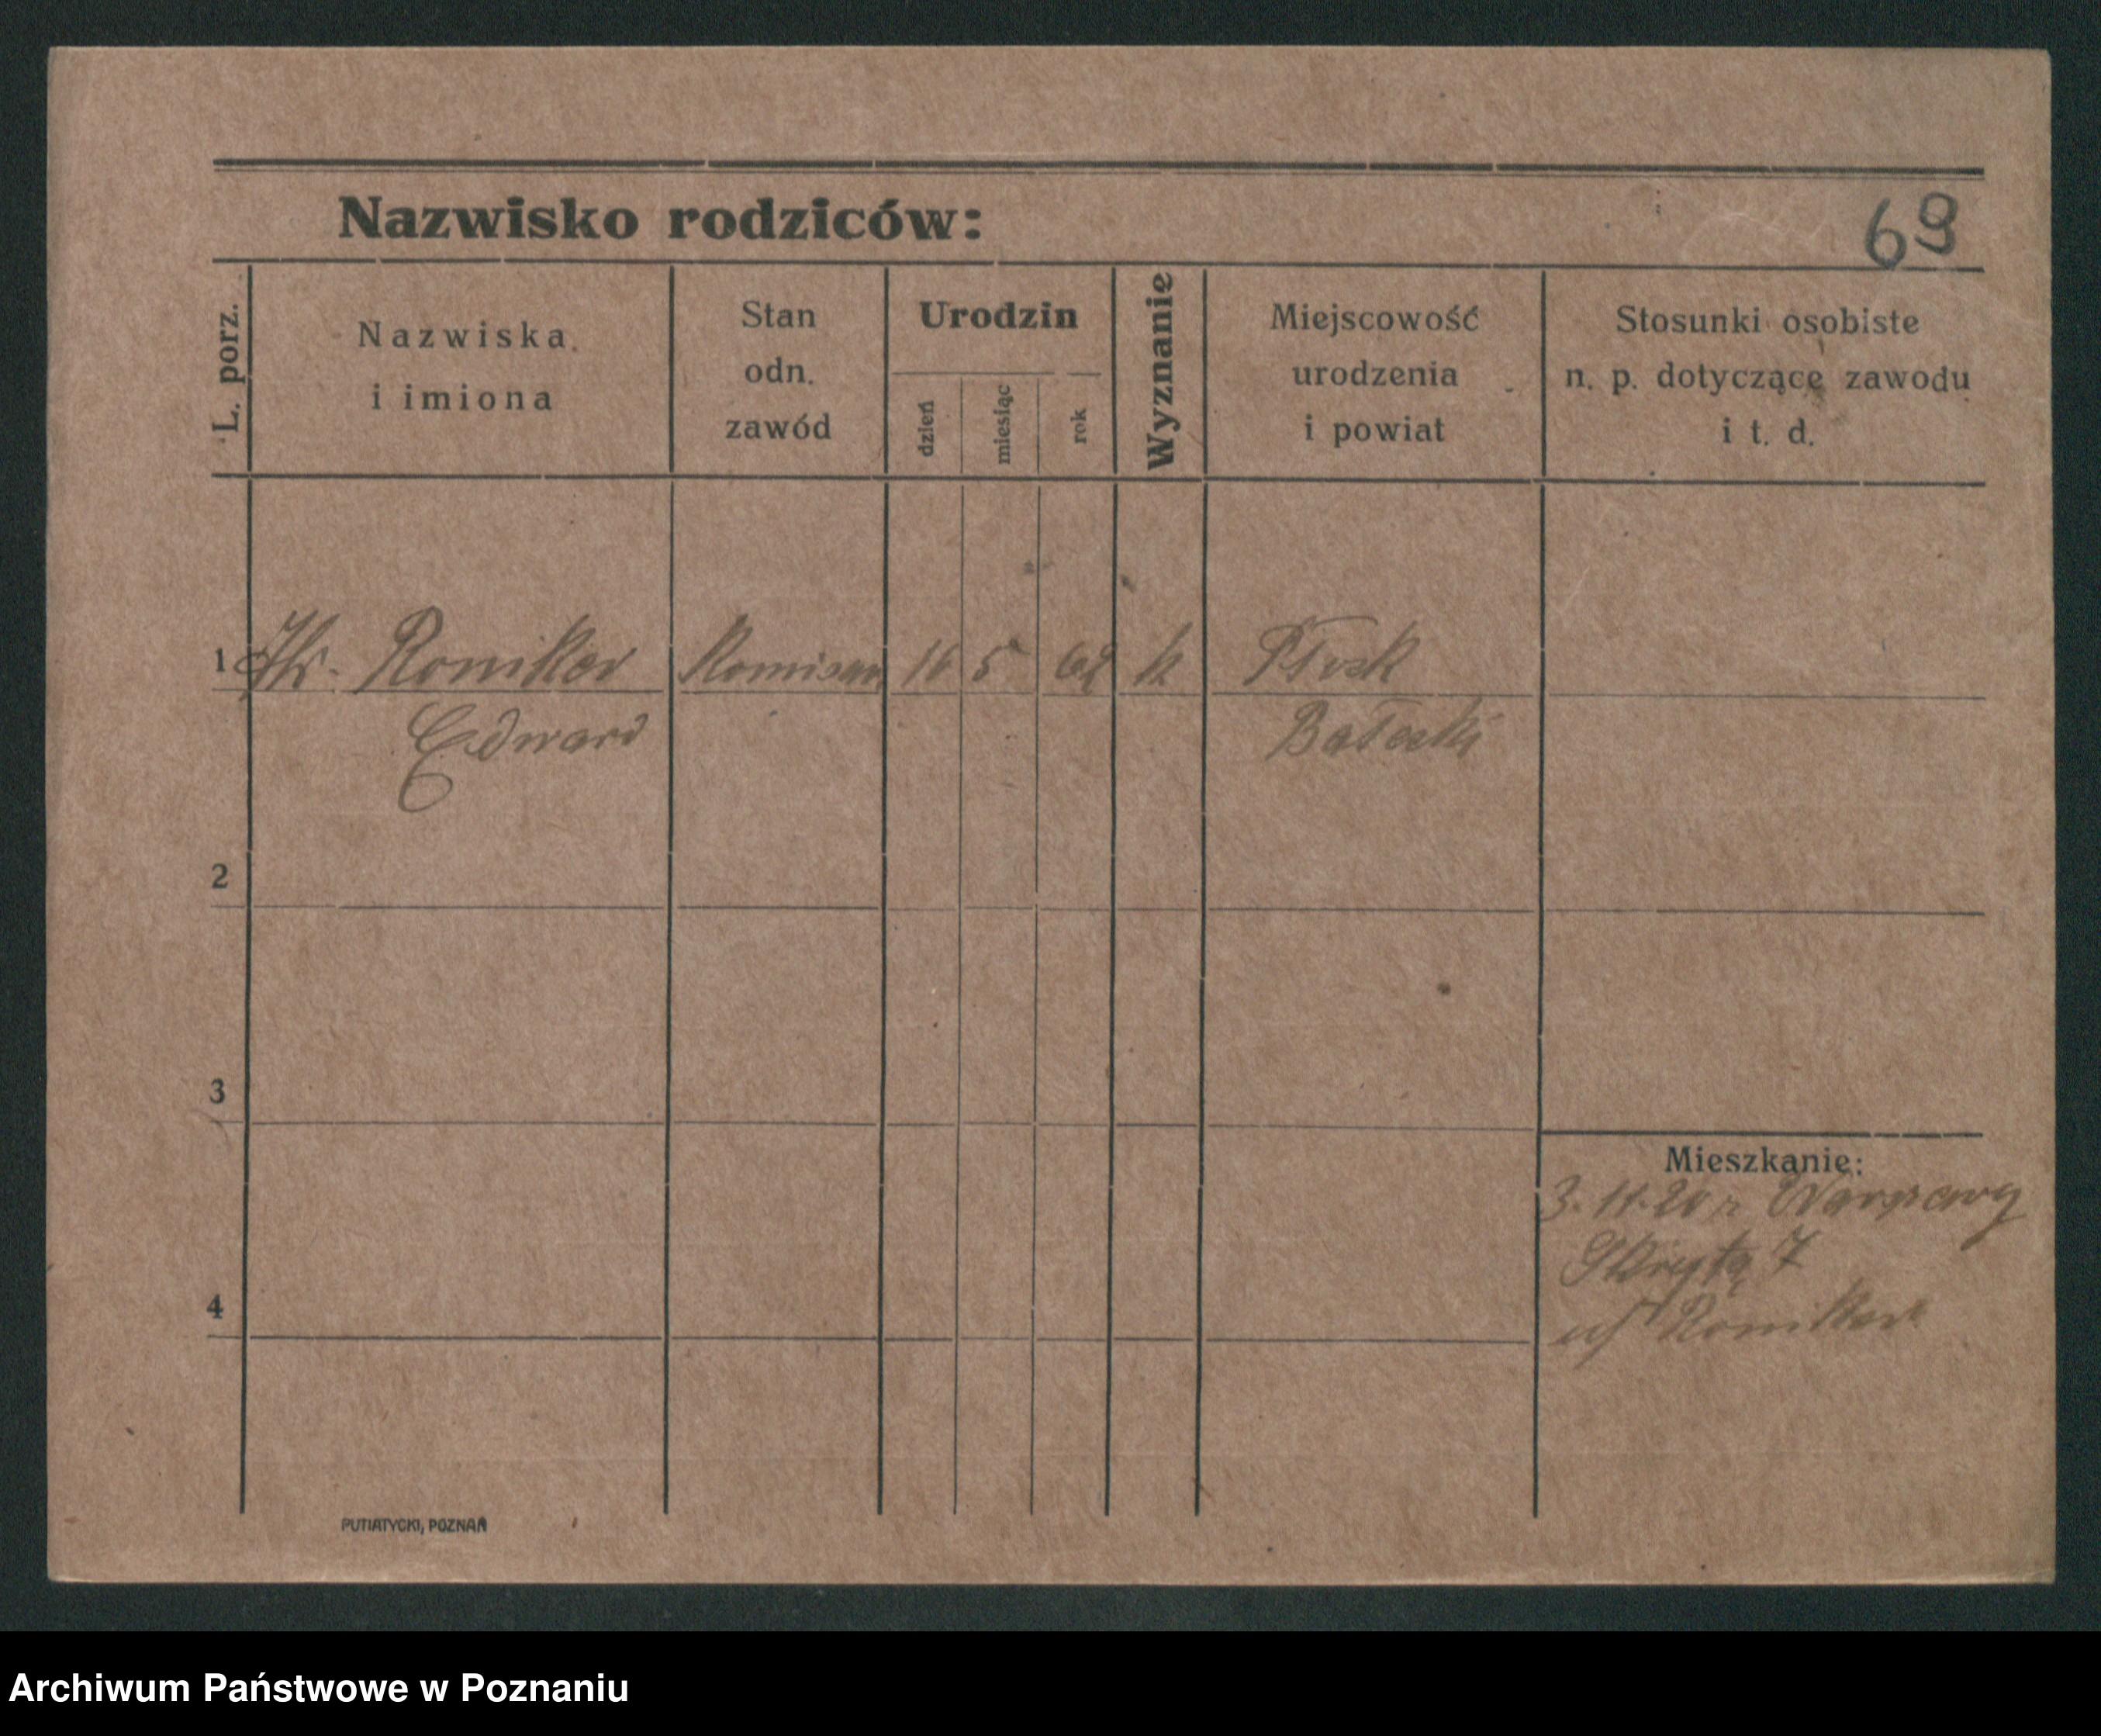 Nazwisko rodziców:
69
L. porz.
Nazwiska
i imiona
Stan
odn.
zawód
Urodzin
dzień
miesiąc
rok
Wyznanie
Miejscowość
urodzenia
i powiat
Stosunki osobiste
n. p. dotyczące zawodu
i t. d.
1 Hr. Roniker Komisarz 16 5 62 k
Edward
2
3
4
Mieszkanie:
3. 11. 20 r. Warszawy
7
Roniker
PUTIATYCKI, POZNAŃ
Archiwum Państwowe w Poznaniu